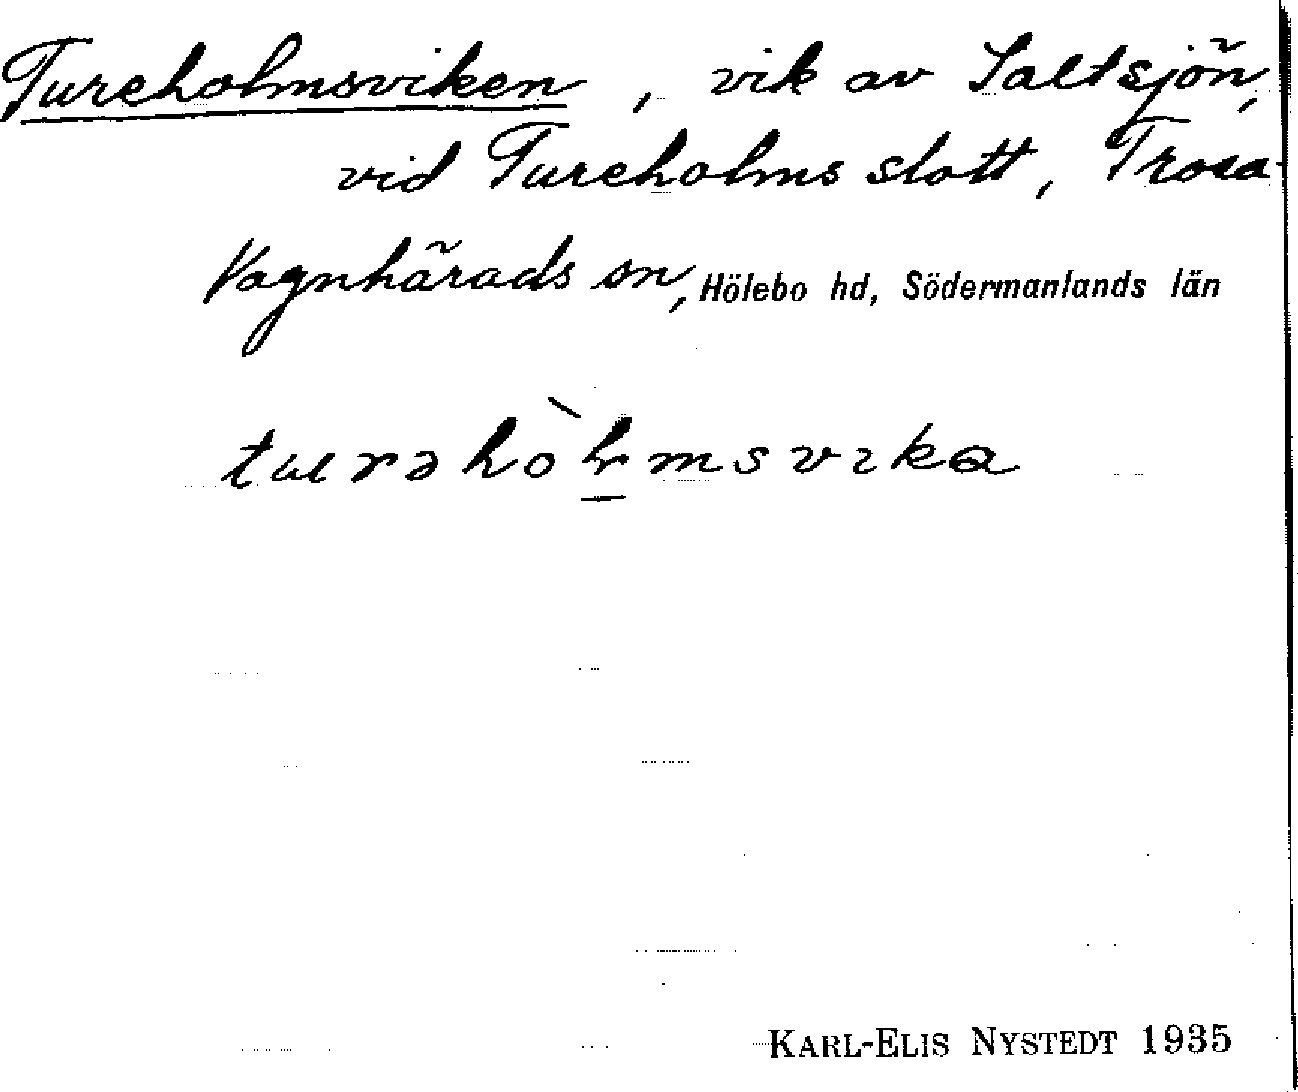 Tureholmsviken, vik av Saltsjön,
vid Tureholms slott, Trosa-
Vagnhärads sn, Hölebo hd, Södermanlands län
turəhòlmsvika
KARL-ELIS NYSTEDT 1935